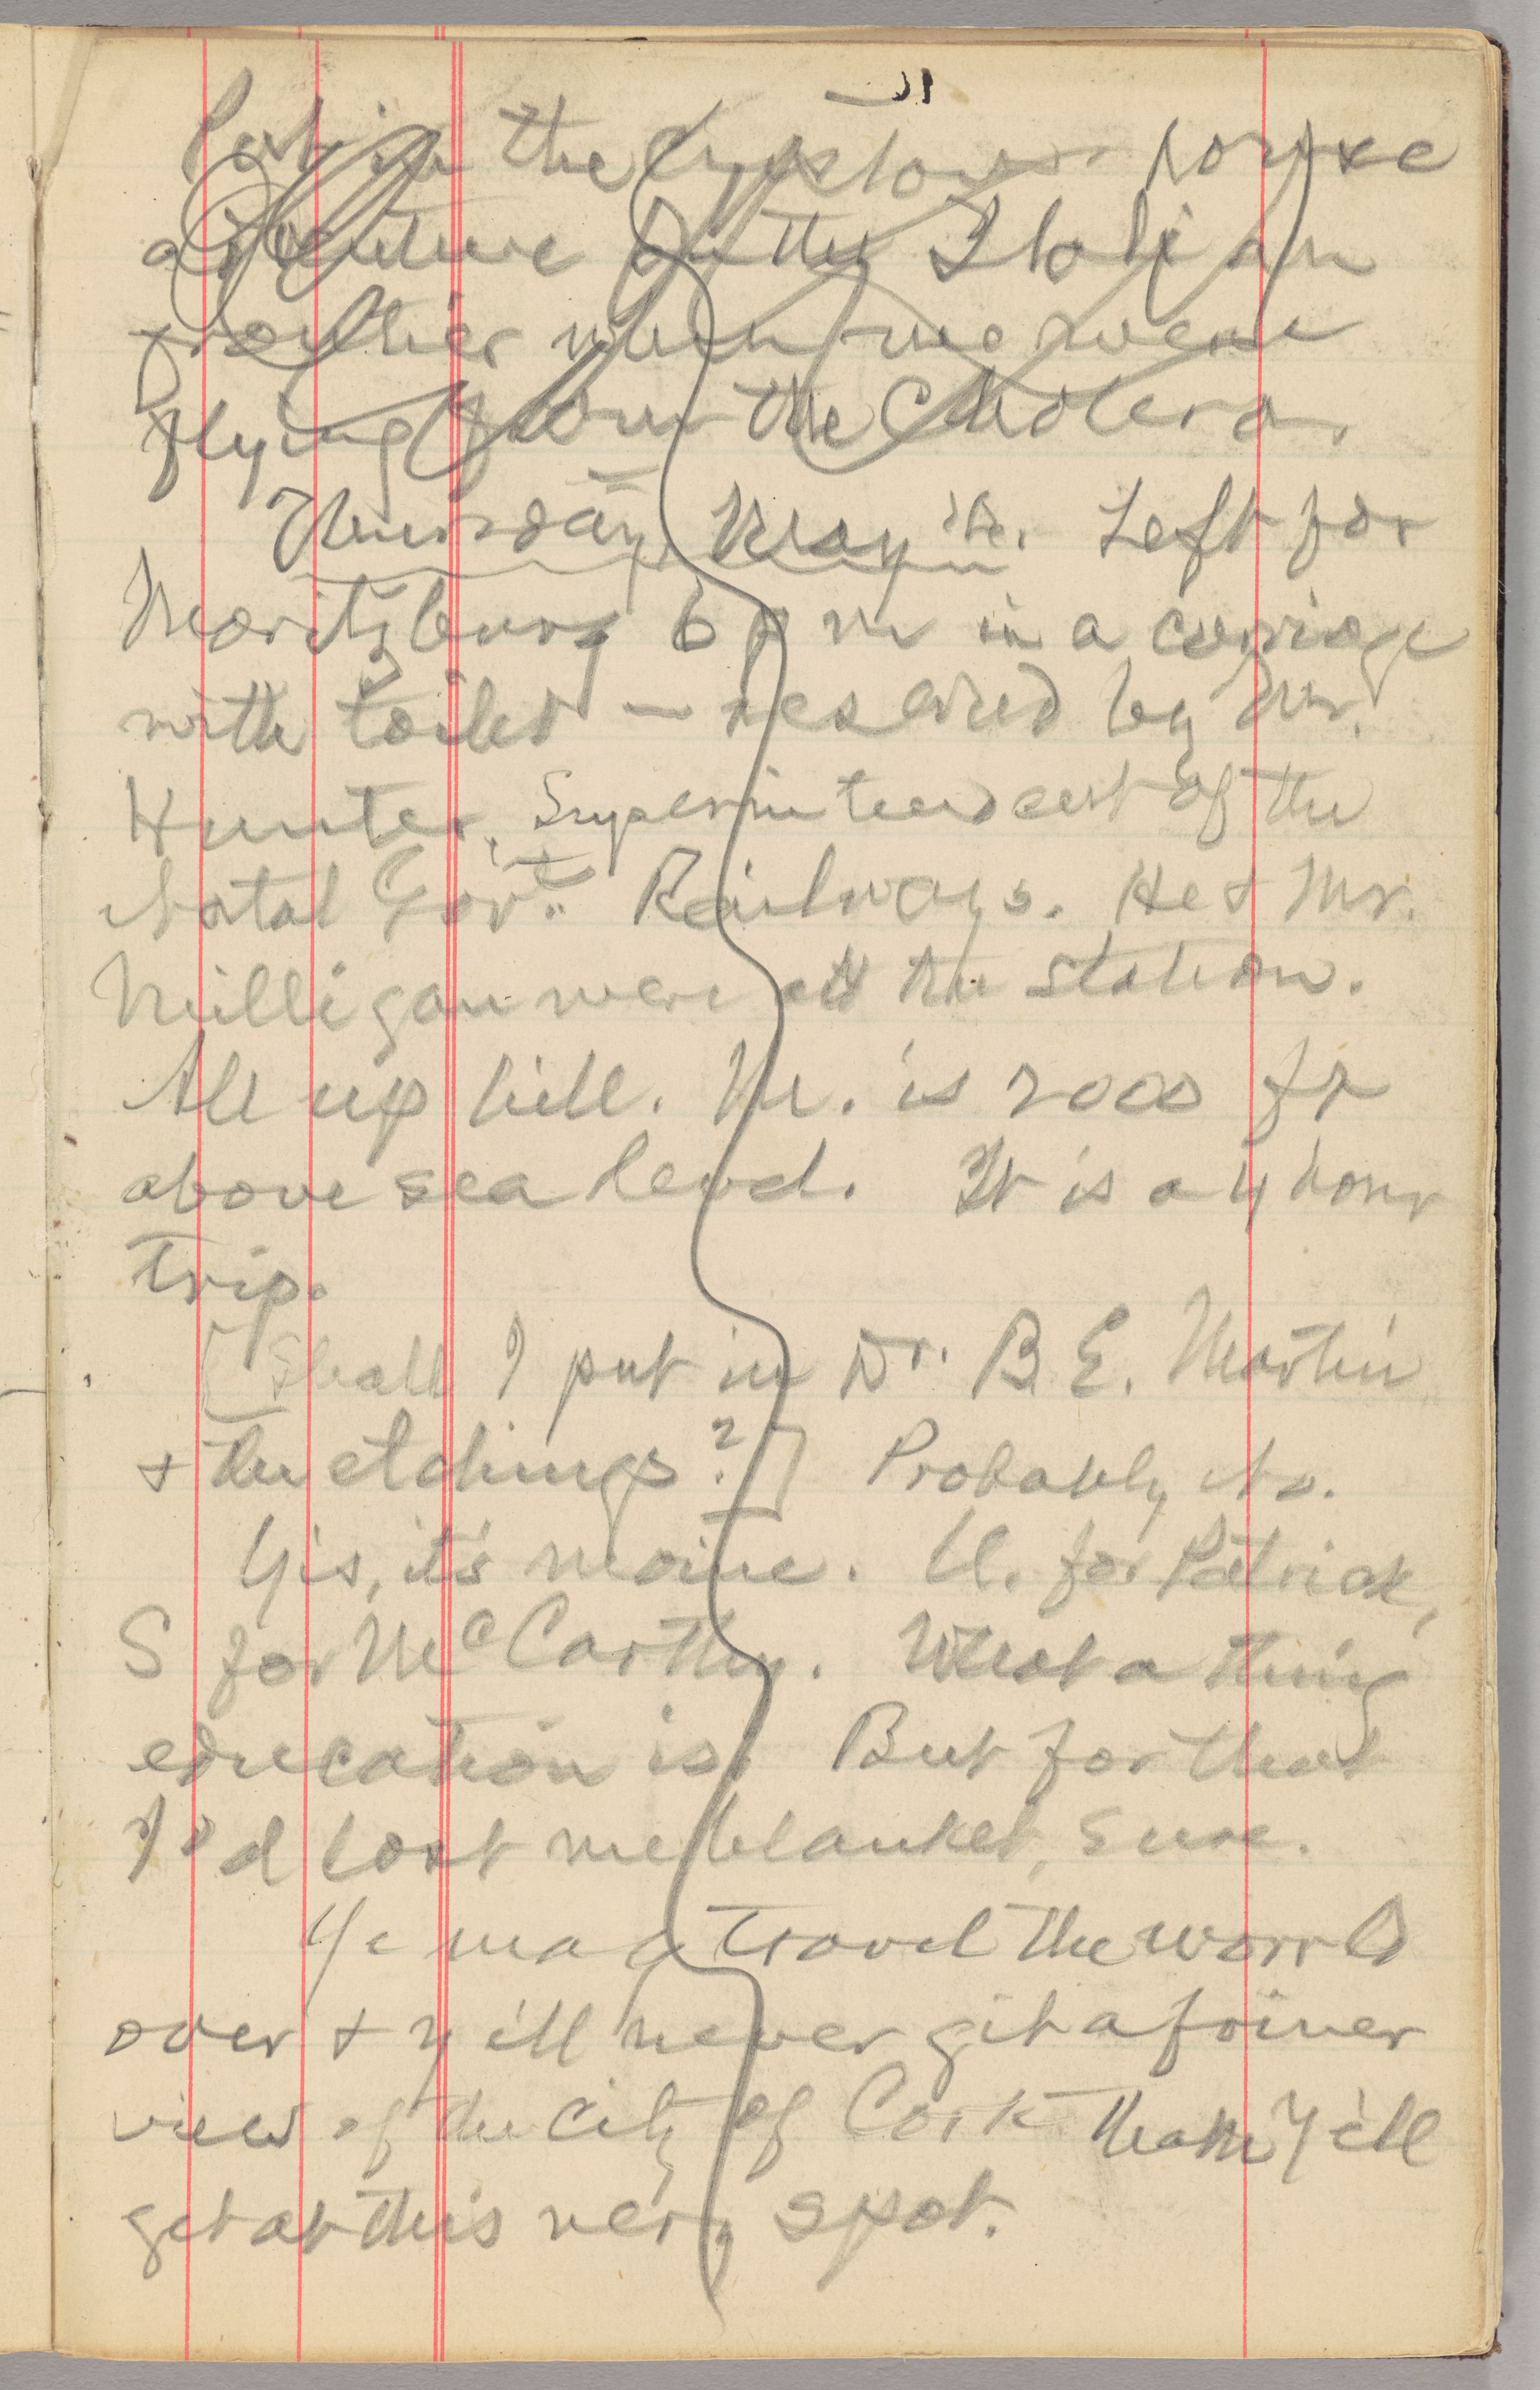 31
Put in the Keystone porpse
adventure on the Italian
frontier when we were
flying from the cholera.
Thursday, May Left for
Maritzburg 6 p m in a carriage
with toilet — reserved by Mr.
Hunter, Superintendent of the
Natal Gov't. Railways. He & Mr.
Milligan were at the station.
All up hill. M. is 2000 ft
above sea level. It is a 4 hour
trip.
[Shall I put in Dr. B. E. Martin
& the etchings?] Probably No.
Yis, it's moine. U. for Patrick,
S for McCarthy. What a thing
education is. But for that
I'd lost me blanket, sure.
Ye may travel the worrld
over & y'ill never git a foiner
view of the city of Cork than y'ill
get at this very spot.